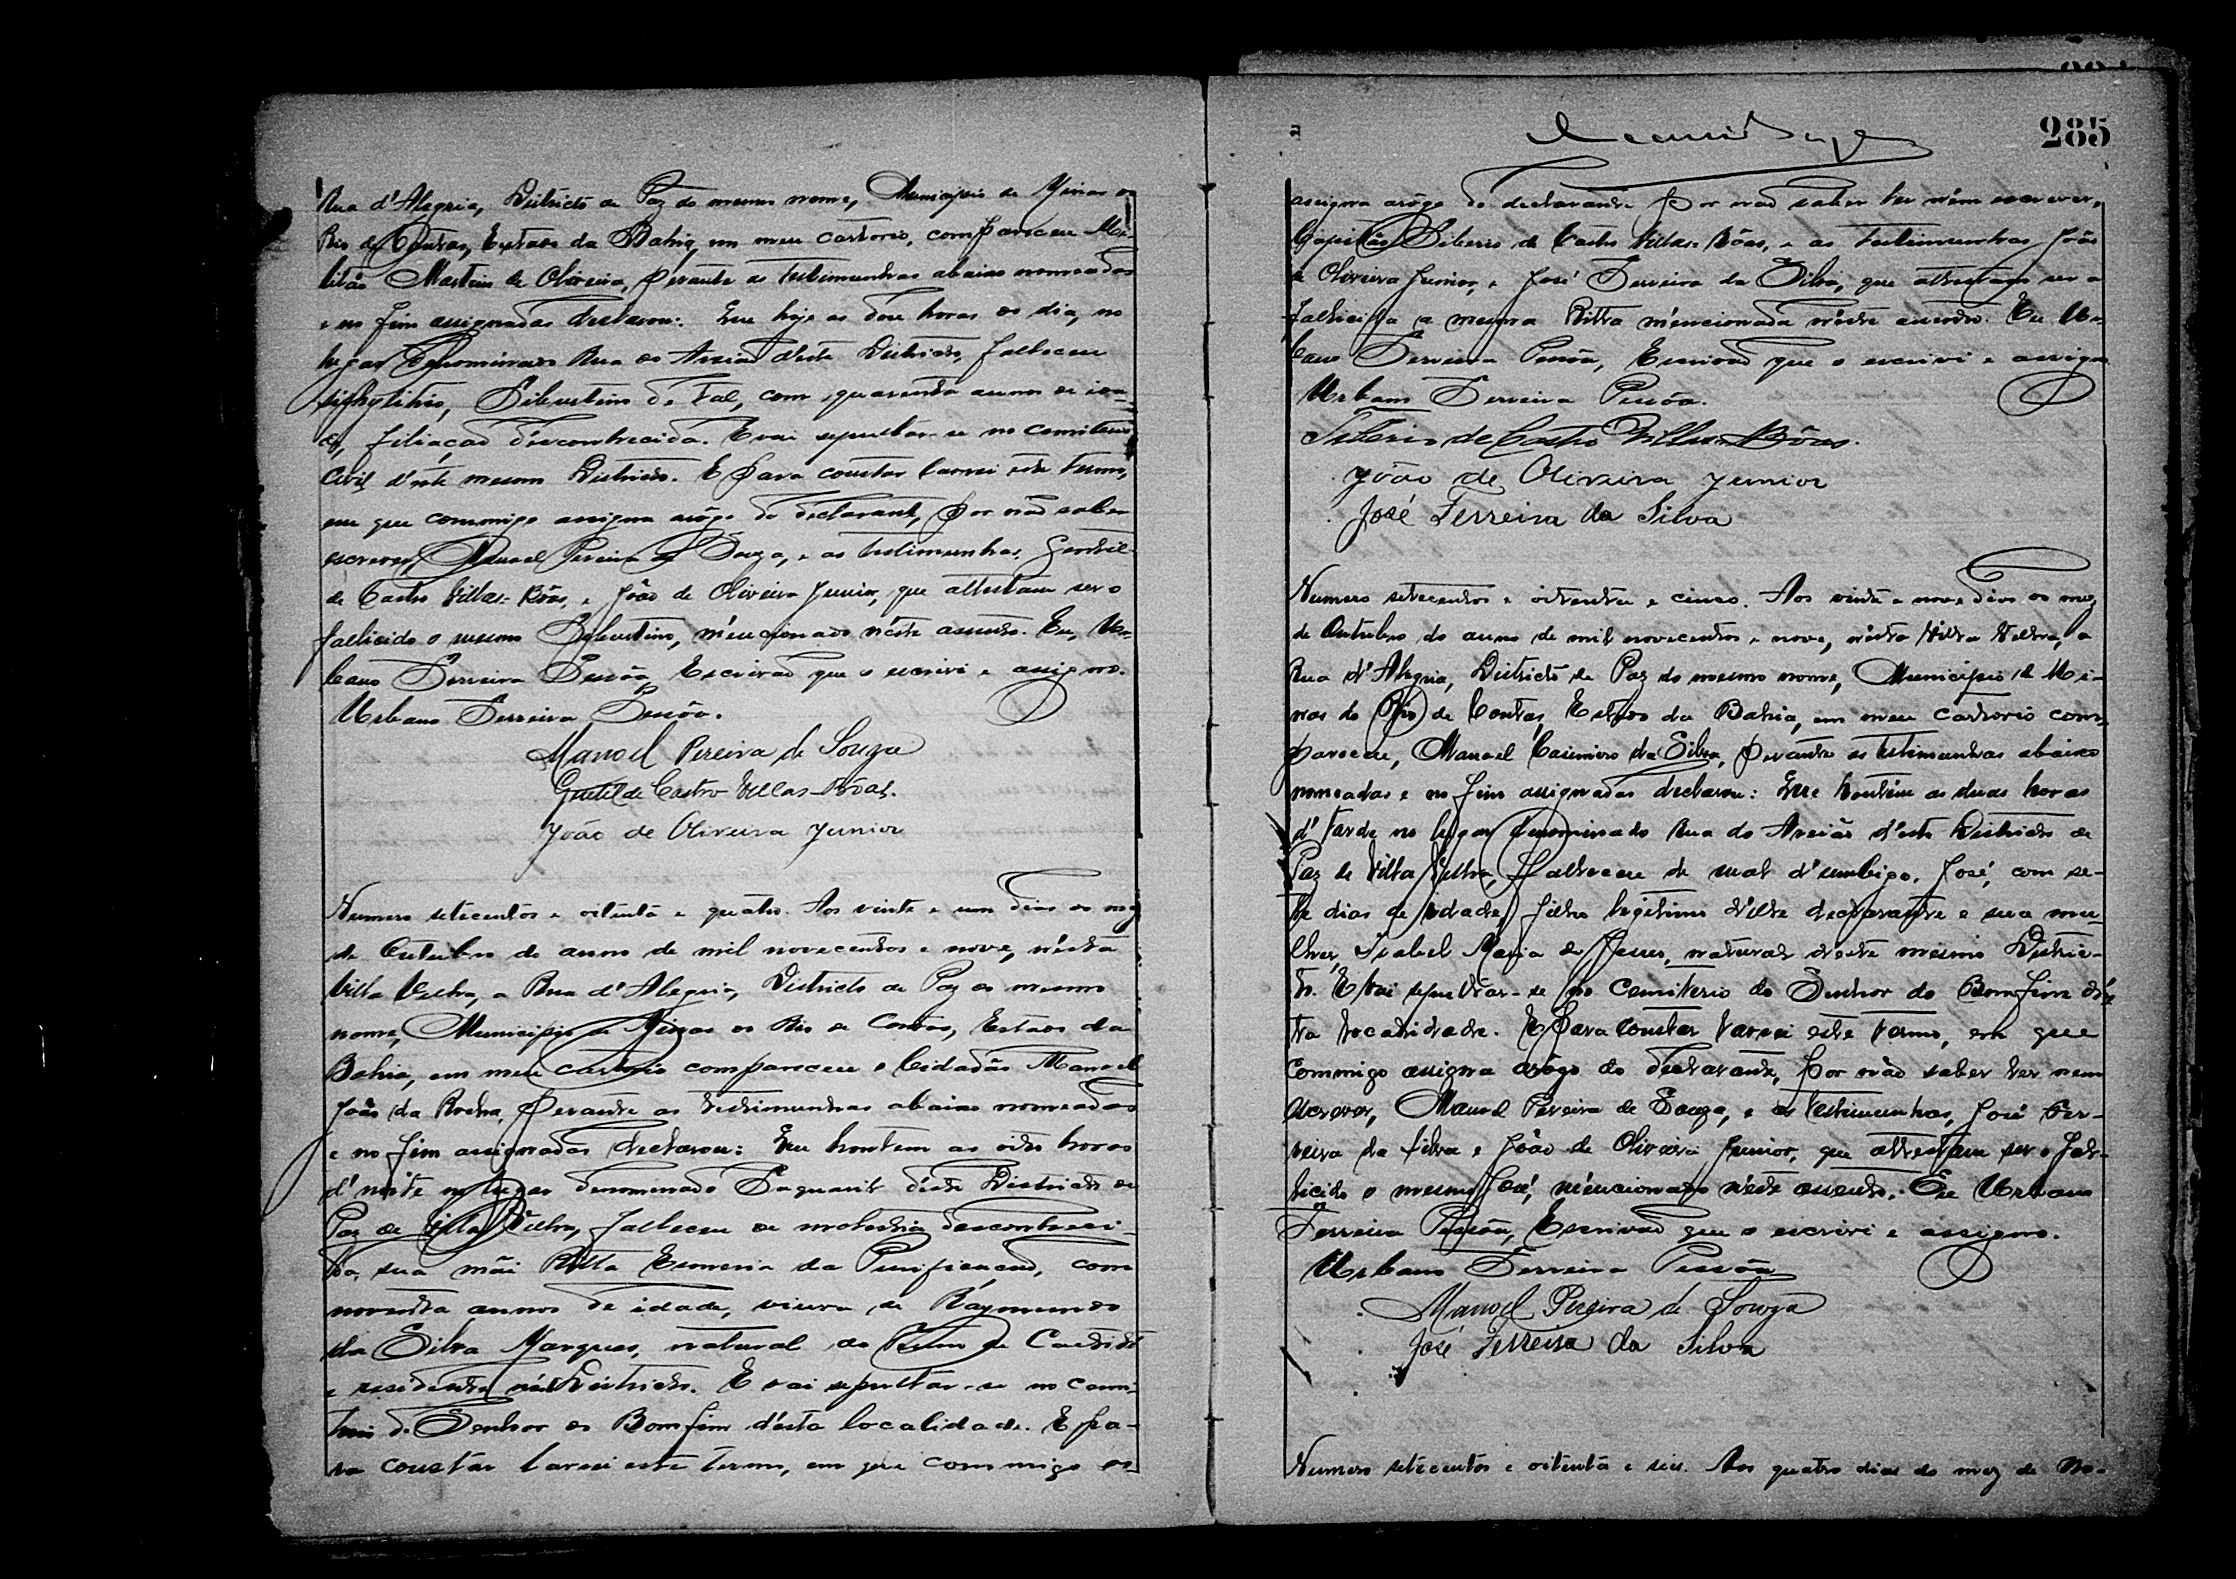 Rua d'Alegria, Districto de Paz do mesmo nome, Municipio de Minas do
Rio de Contas, Estado da Bahia, em meu cartorio, compareceu
Martins de Oliveira, perante as testimunhas abaixo nomeadas
e no fim assignadas declarou: Que hoje as doze horas do dia, no
lugar denominado Rua do Areião d'este Districto, falleceu
siphylitico, Silvestino de Tal, com quarenta annos de ida-
de, filiação desconhecida. E vai sepultar-se no cemiterio
Civil d'este mesmo Districto. E para constar lavrei este termo,
em que commigo assigna arôgo do declarante, por não saber
escrever, Manoel Pereira de Souza, e as testimunhas, Gentil
de Castro Villas-Bôas, e João de Oliveira Junior, que attestam ser o
fallecido o mesmo Silvestino, mencionado n'este assento. Eu, Ur-
bano Ferreira Pessôa, Escrivão que o escrivi e assigno.
Urbano Ferreira Pessôa.
Manoel Pereira de Souza
Gentil de Castro Villas-Bôas.
João de Oliveira Junior
Numero setecentos e oitenta e quatro. Aos vinte e um dias do mez
de Outubro do anno de mil novecentos e nove, n'esta
Villa Velha, a Rua d'Alegria, Districto de Paz do mesmo
nome, Municipio de Minas do Rio de Contas, Estado da
Bahia, em meu cartorio compareceu o Cidadão Manoel
João da Rocha, perante as testimunhas abaixo nomeadas
e no fim assignadas declarou: Que hontem as oito horas
d' noite no lugar denominado d'este Districto de
Paz de Villa Velha, falleceu de molestia desconheci-
da, sua mãi Ritta Esmeria da Purificação, com
noventa annos de idade, viuva de Raymundo
da Silva Marques, natural do de
e residente n'este Districto. E vai sepultar-se no cemi-
terio do Senhor do Bomfim d'esta localidade. E pa-
ra constar lavrei este termo, em que commigo as-
285
assigna arôgo do declarante por não saber ler nem escrever,
Capitão Tiberio de Castro Villas-Bôas, e as testimunhas João
de Oliveira Junior, e José Ferreira da Silva, que attestam ser a
fallecida a mesma Ritta mencionada n'este assento. Eu Ur-
bano Ferreira Pessôa, Escrivão que o escrivi e assigno
Urbano Ferreira Pessôa.
Tiberio de Castro Villas-Bôas.
João de Oliveira Junior
José Ferreira da Silva
Numero setecentos e oitenta e cinco. Aos vinte e nove dias do mez
de Outubro do anno de mil novecentos e nove, n'esta Villa Velha, a
Rua d'Alegria, Districto de Paz do mesmo nome, Municipio de Mi-
nas do Rio de Contas, Estado da Bahia, em meu cartorio com-
pareceu, Manoel Casimiro da Silva, perante as testimunhas abaixo
nomeadas e no fim assignadas declarou: Que hontem as duas horas
d' tarde no lugar denominado Rua do Areião d'este Districto de
Paz de Villa Velha, falleceu de mal d'umbigo, José, com se-
te dias de idade, filho legitimo d'elle declarante e sua mu-
lher, Isabel Maria de Jesus, natural d'este mesmo Distric-
to. E vai sepultar-se no Cemiterio do Senhor do Bomfim d'es-
ta localidade. E para constar lavrei este termo, em que
commigo assigna arôgo do declarante, por não saber ler nem
escrever, Manoel Pereira de Souza, e as testimunhas, José Fer-
reira da Silva e João de Oliveira Junior, que attestam ser o fal-
lecido o mesmo José, mencionado n'este assento. Eu Urbano
Ferreira Pessôa, Escrivão que o escrivi e assigno.
Urbano Ferreira Pessôa
Manoel Pereira de Souza
José Ferreira da Silva
Numero setecentos e oitenta e seis. Aos quatro dias do mez de No-